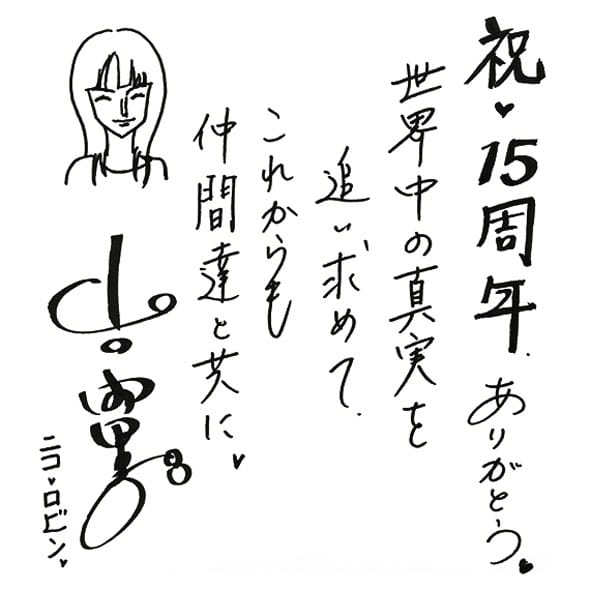 祝♥15周年.ありがとう♥
世界中の真実を
追い求めて.
これからも
仲間達と共に♥
ニコ♥ロビン♥